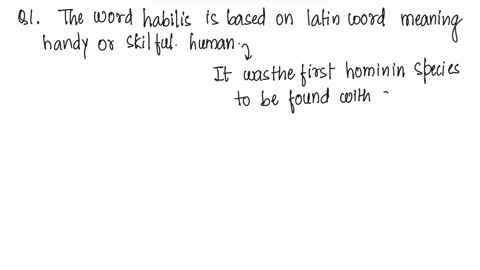 Q1. The word habilis is based on latin word meaning
handy or skilful. human.
It was the first hominin species
to be found with